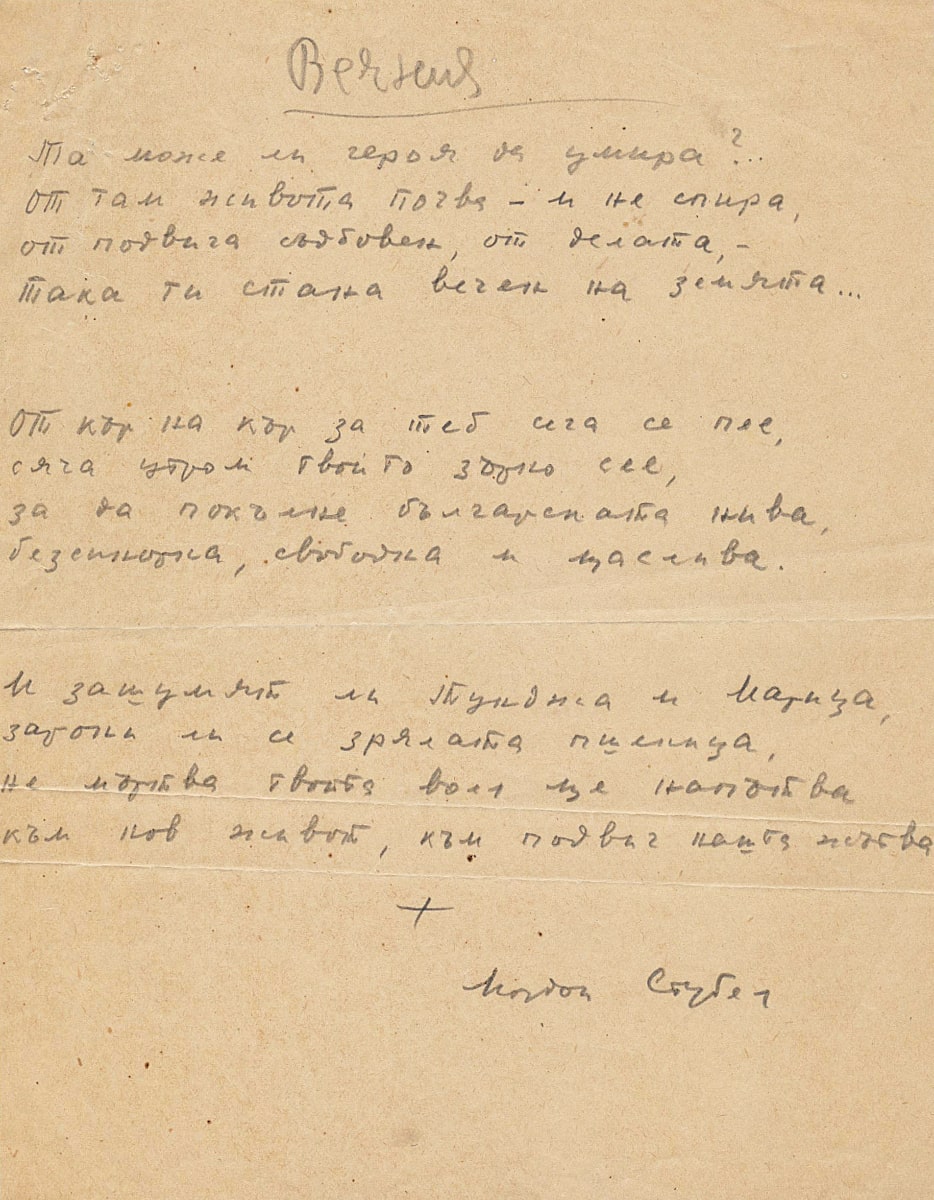 Вечния
Та може ли героя да умира?...
От там живота почва – и не спира,
от подвига съдбовен, от делата, –
така ти стана вечен на земята...
От кър на кър за теб сега се пее,
сяга утром твойто зърно сее,
за да покълне българската нива,
безсинорна, свободна и щаслива.
И зашумят ли Тунджа и Марица,
зарони ли се зрялата пшеница,
не мъртва твойта воля ще напътва
към нов живот, към подвиг нашта жътва
Йордан Стубел